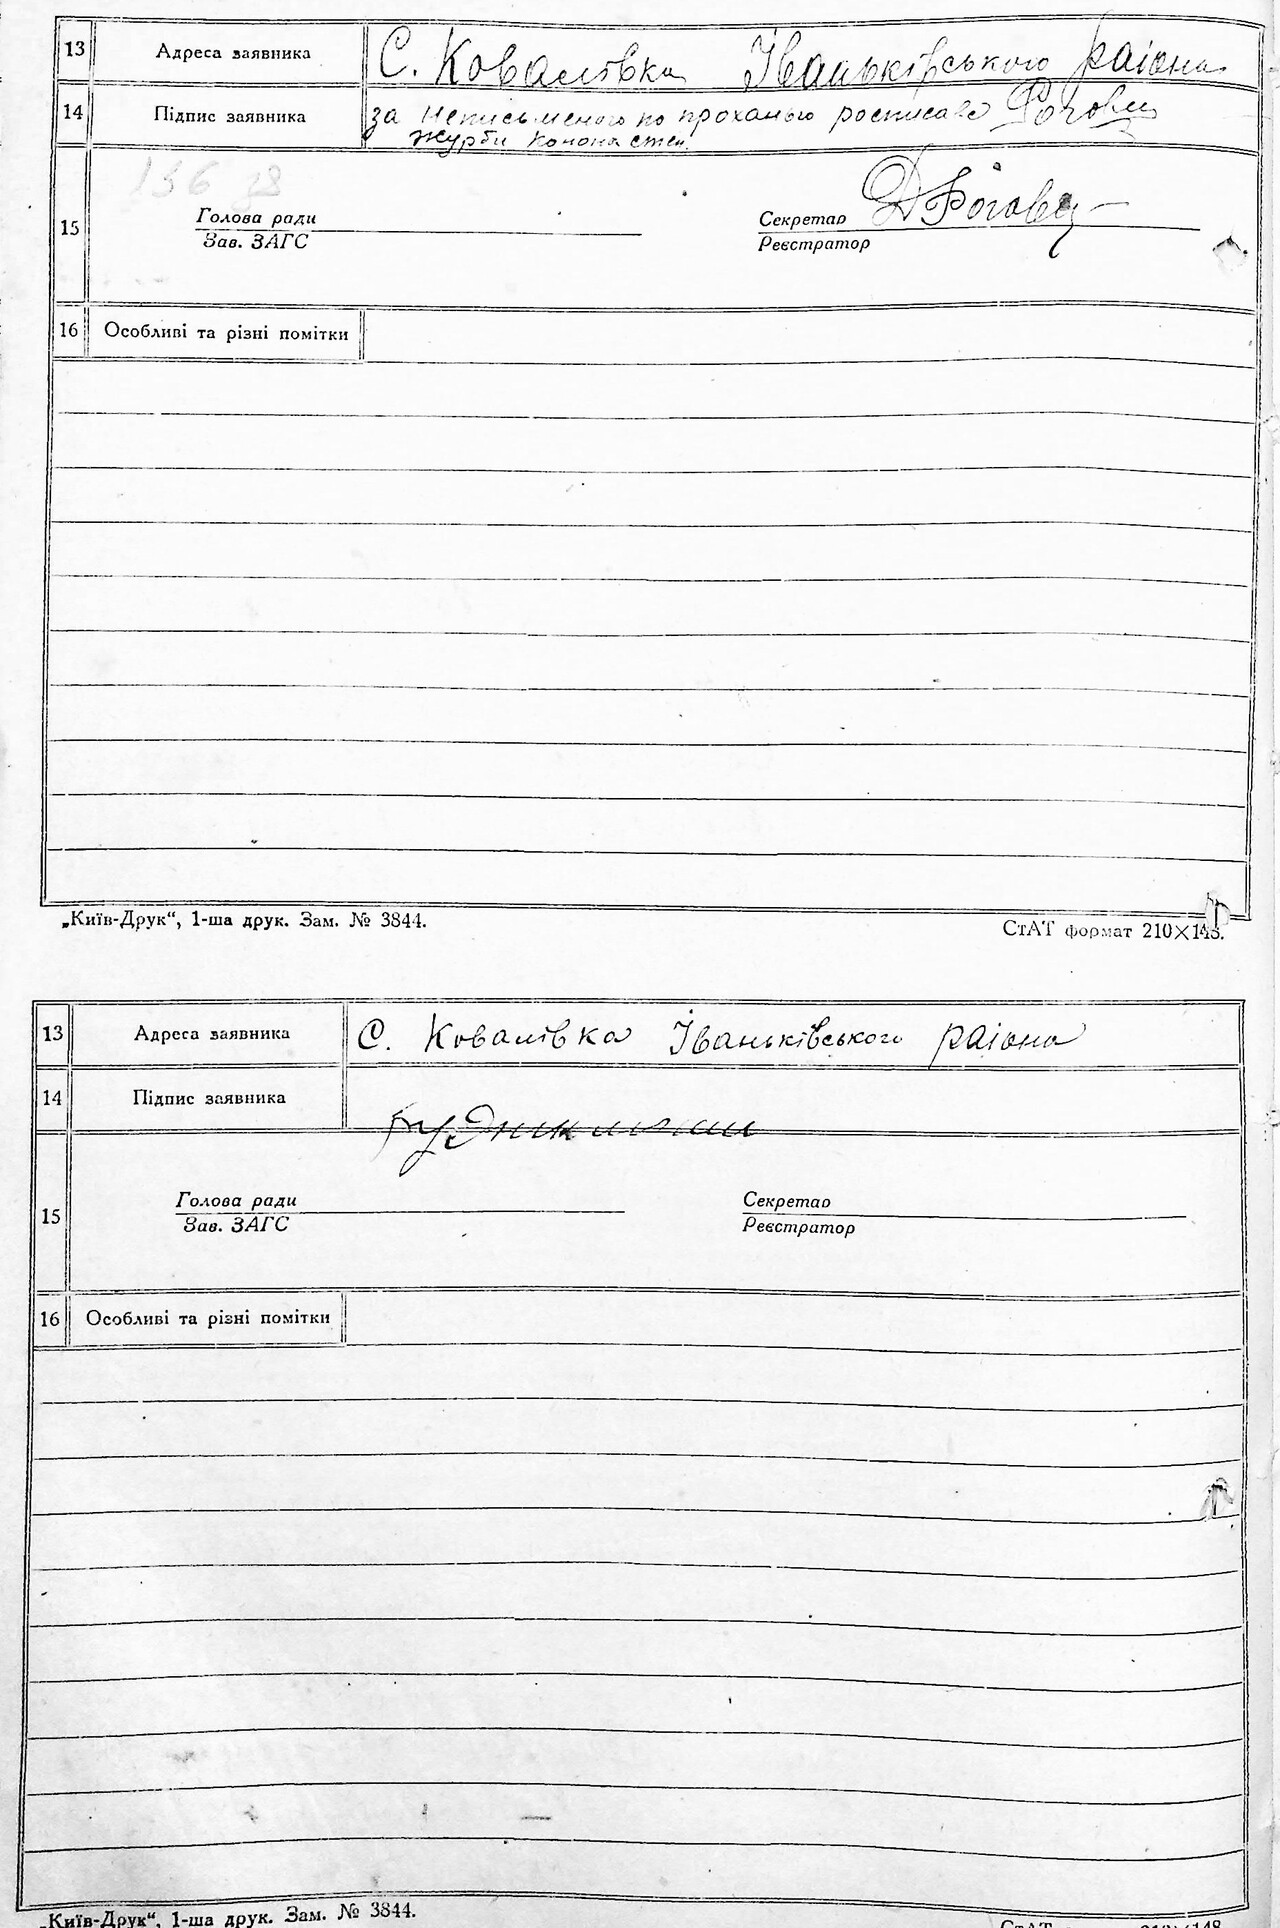 13 Адреса заявника С. Ковалівка Іваньківського раіона
14 Підпис заявника за неписьменого по проханью росписався Рогови
Журби Конона Степ.
156 38
15
Голова ради Секретар Д Рогова
Зав. ЗАГС Реєстратор
16 Особливі та різні помітки
„Київ-Друк“, 1-ша друк. Зам. № 3844. СтАТ формат 210×148.
13 Адреса заявника С. Ковалівка Іваньківського раіона
14 Підпис заявника
15
Голова ради Секретар
Зав. ЗАГС Реєстратор
16 Особливі та різні помітки
„Київ-Друк“, 1-ша друк. Зам. № 3844.